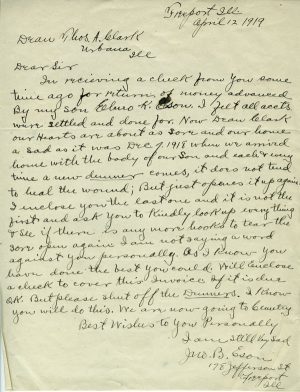 Freeport Ill
April 12 1919
Dean Thos. A. Clark
Urbana
Ill
Dear Sir
In recieving a check from you some
time ago for return of money advanced
By my son Elmo K. Eson. I felt all accts
were settled and done for. Now Dean Clark
our Hearts are about as sore and our home
a sad as it was Dec 9. 1918 when we arrived
home with the body of our Son and each & every
time a new dunner comes, it does not tend
to heal the wound; But just opens it up again.
I inclose you the last one and it is not the
first and ask you to kindly look up everything
& see if there is any more books to tear the
sore open again. I am not saying a word
against you personally. As I know you
have done the best you could. Will Enclose
a check to cover this invoice if it is due
O.K. But please shut off the Dunners. I know
you will do this. We are now going to Cemetery
Best Wishes to You Personally
I am Still Very Sad
Jno. B. Eson
178 Jefferson St
Freeport
Ill